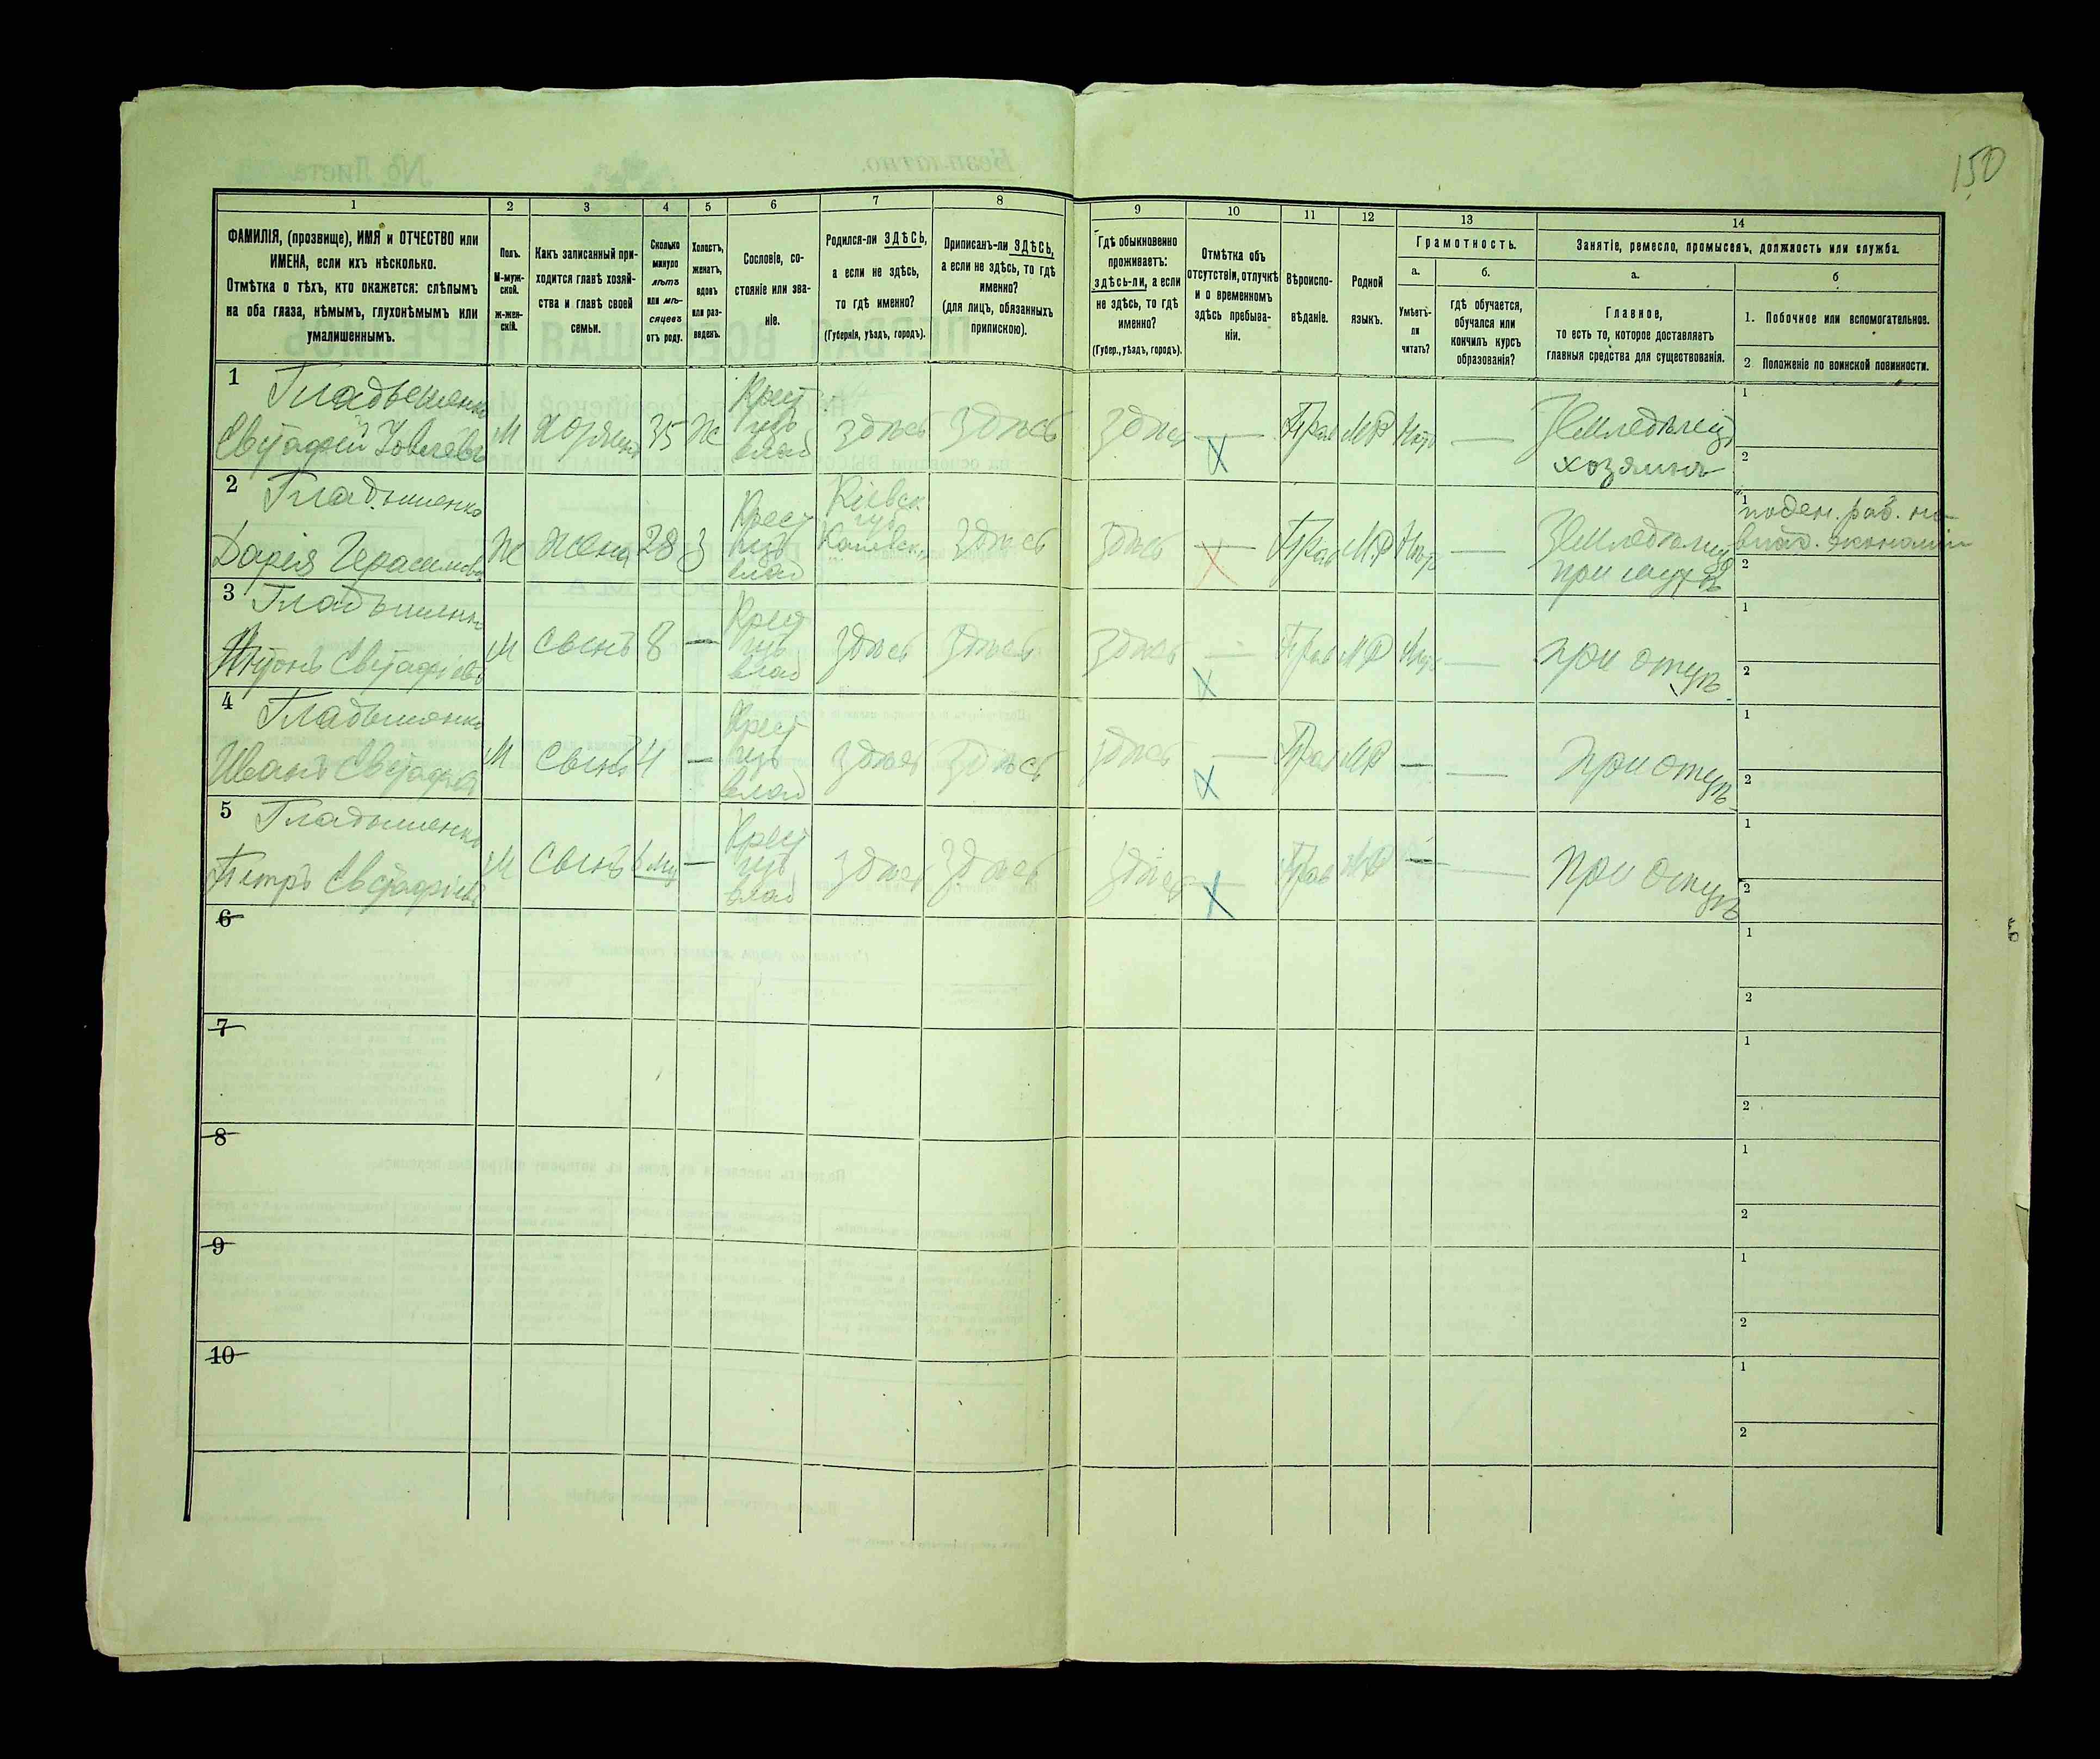 150
1
2
3
4
5
6
7
8
9
10
11
12
13
14
ФАМИЛІЯ, (прозвище), ИМЯ и ОТЧЕСТВО или
ИМЕНА, если ихъ нѣсколько.
Отмѣтка о тѣхъ, кто окажется: слѣпымъ
на оба глаза, нѣмымъ, глухонѣмымъ или
умалишеннымъ.
Полъ.
М-муж-
ской.
Ж-жен-
скій.
Какъ записанный при-
ходится главѣ хозяй-
ства и главѣ своей
семьи.
Сколько
минуло
лѣтъ
или мѣ-
сяцевъ
отъ роду.
Холостъ,
женатъ,
вдовъ
или раз-
веденъ.
Сословіе, со-
стояніе или зва-
ніе.
Родился-ли ЗДѢСЬ,
а если не здѣсь,
то гдѣ именно?
(Губернія, уѣздъ, городъ).
Приписанъ-ли ЗДѢСЬ,
а если не здѣсь, то гдѣ
именно?
(для лицъ, обязанныхъ
припискою).
Гдѣ обыкновенно
проживаетъ:
здѣсь-ли, а если
не здѣсь, то гдѣ
именно?
(Губер., уѣздъ, городъ).
Отмѣтка объ
отсутствіи, отлучкѣ
и о временномъ
здѣсь пребыва-
ніи.
Вѣроиспо-
вѣданіе.
Родной
языкъ.
Грамотность.
а.
Умѣетъ-
ли
читать?
б.
гдѣ обучается,
обучался или
кончилъ курсъ
образованія?
Занятіе, ремесло, промыселъ, должность или служба.
а.
Главное,
то есть то, которое доставляетъ
главныя средства для существованія.
б
1. Побочное или вспомогательное.
2 Положеніе по воинской повинности.
1 Гладышенко
Евстафій Іовлевъ
М хозяинъ 35 Ж
Крест
изъ
влад
здѣсь здѣсь здѣсь — Прав МР Нѣтъ —
Земледѣлецъ
хозяинъ
1
2
2 Гладышенко
Дарія Герасимова
Ж Жена 28 З
Крест
изъ
влад
Кіевск
губ
Каневск.
здѣсь здѣсь — Прав МР Нѣтъ —
при мужѣ
1 поден. раб. на
влад. экономіи
2
3 Гладышенко
Антонъ Евстафіевъ
М сынъ 8 —
Крест
изъ
влад
здѣсь здѣсь здѣсь — Прав МР Нѣтъ —
при отцѣ
1
2
4 Гладышенко
Иванъ Евстафіев
М сынъ 4 —
Крест
изъ
влад
здѣсь здѣсь здѣсь — Прав МР — —
при отцѣ
1
2
5 Гладышенко
Петръ Евстафіевъ
М сынъ —
Крест
изъ
влад
здѣсь здѣсь здѣсь — Прав МР — —
при отцѣ
1
2
6
1
2
7
1
2
8
1
2
9
1
2
10
1
2